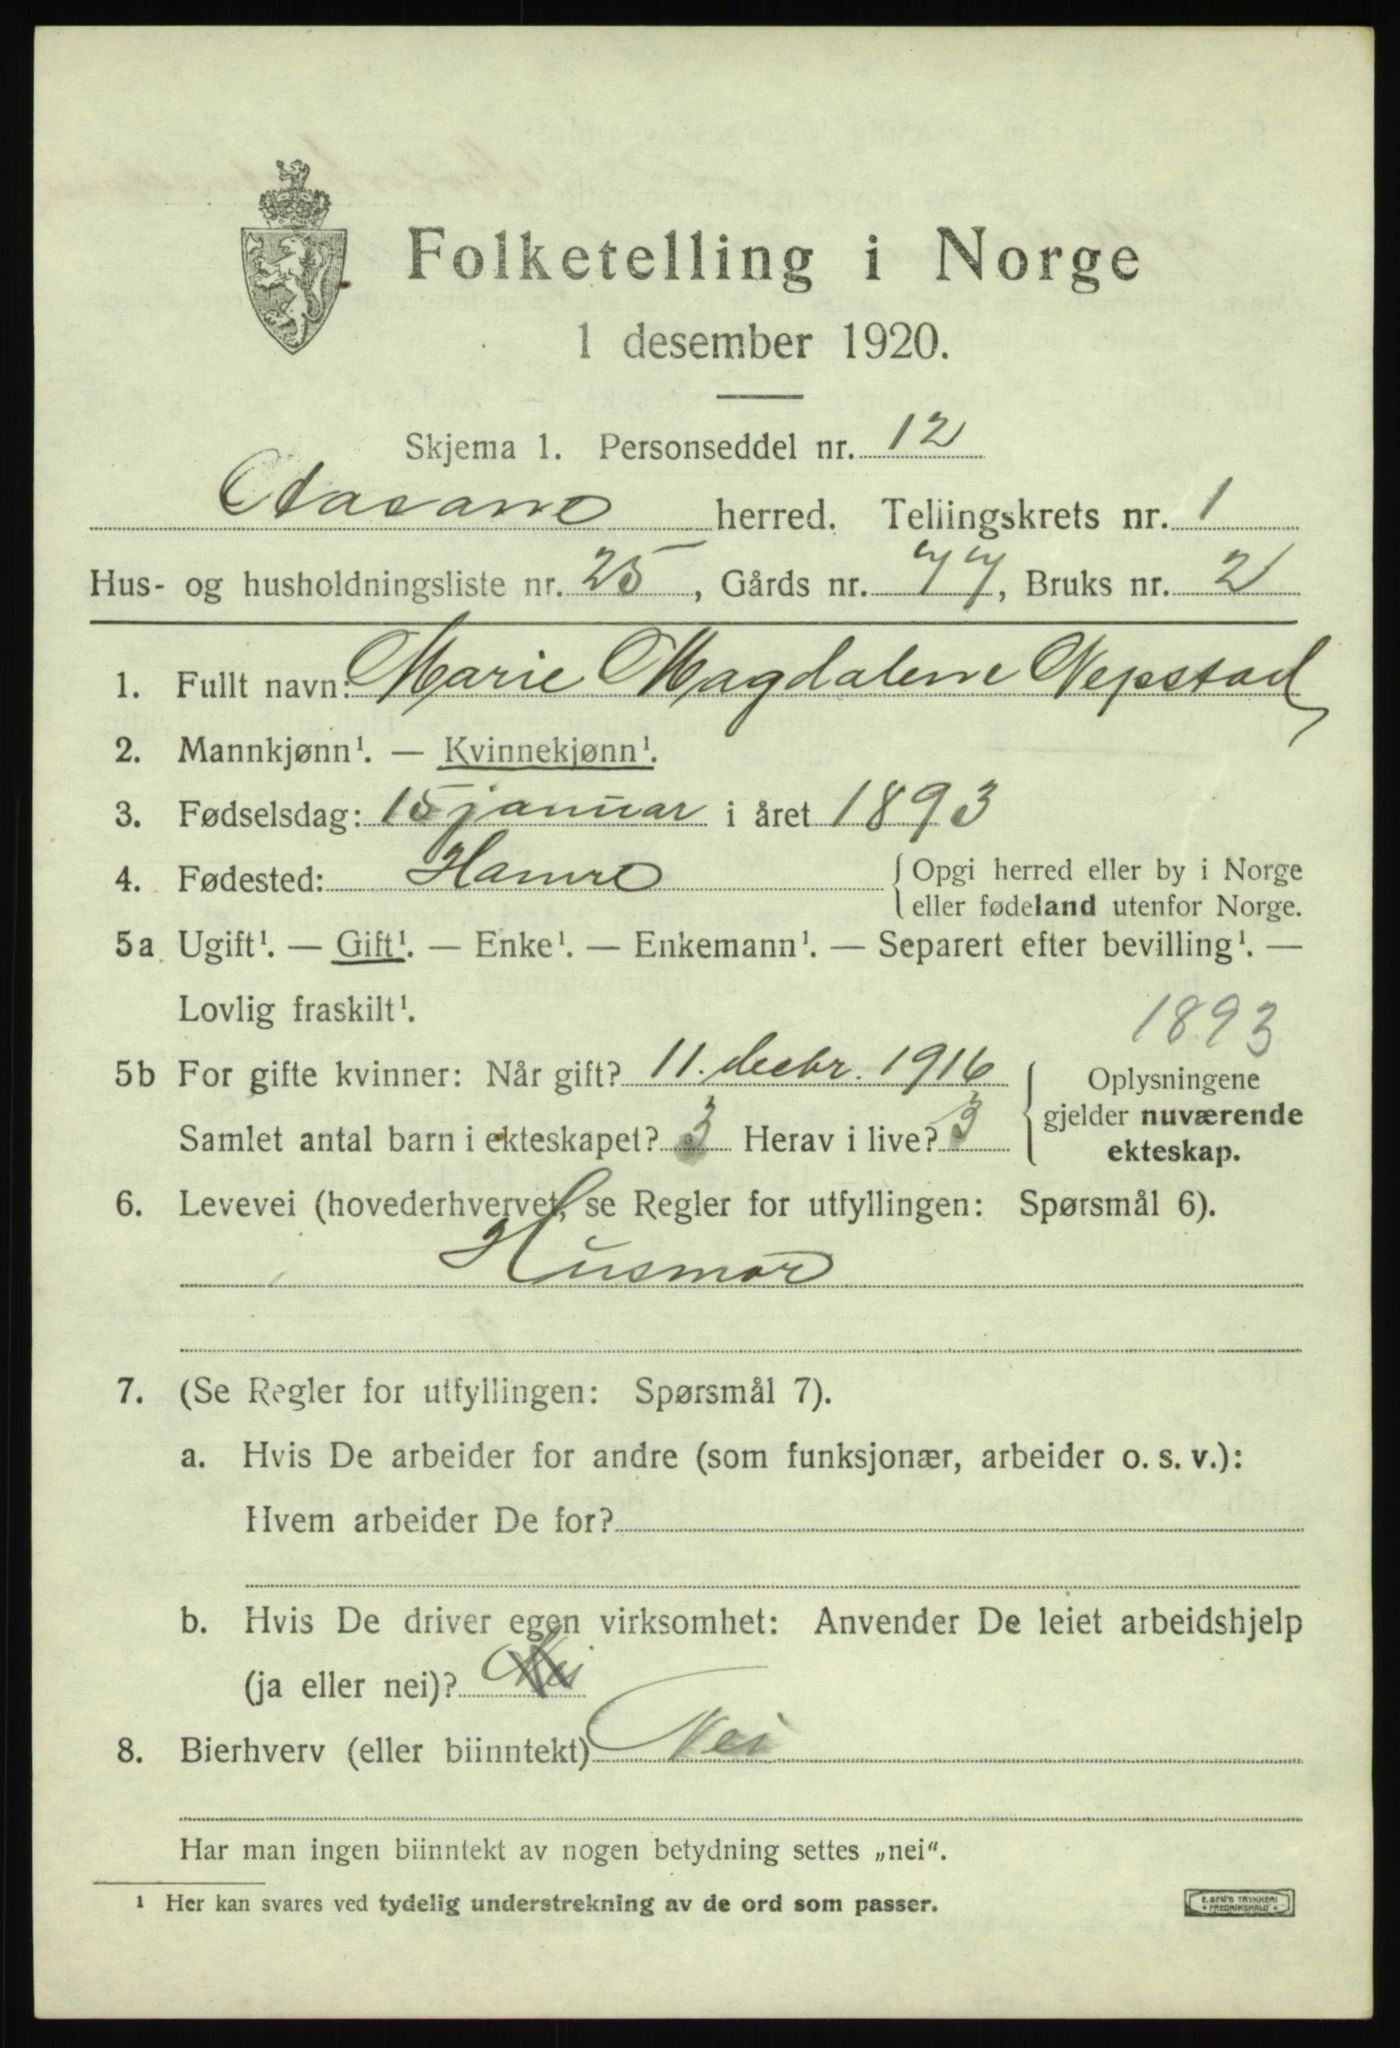 Folketelling i Norge
1 desember 1920.
Skjema 1. Personseddel nr. 12
Aasane herred. Tellingskrets nr. 1
Hus- og husholdningsliste nr. 25, Gårds nr. 77, Bruks nr. 2
1. Fullt navn: Marie Magdalene Nepstad
2. Mannkjønn¹. — Kvinnekjønn¹.
3. Fødselsdag: 15 januar i året 1893
4. Fødested: Hamre { Opgi herred eller by i Norge
eller fødeland utenfor Norge.
5a Ugift¹. — Gift¹. — Enke¹. — Enkemann¹. — Separert efter bevilling¹. —
Lovlig fraskilt¹.
1893
5b For gifte kvinner: Når gift? 11. decbr. 1916
Samlet antal barn i ekteskapet? 3 Herav i live? 3
{ Oplysningene
gjelder nuværende
ekteskap.
6. Levevei (hovederhvervet, se Regler for utfyllingen: Spørsmål 6).
Husmor
7. (Se Regler for utfyllingen: Spørsmål 7).
a. Hvis De arbeider for andre (som funksjonær, arbeider o. s. v.):
Hvem arbeider De for?
b. Hvis De driver egen virksomhet: Anvender De leiet arbeidshjelp
(ja eller nei)? Nei
8. Bierhverv (eller biinntekt) Nei
Har man ingen biinntekt av nogen betydning settes „nei".
¹ Her kan svares ved tydelig understrekning av de ord som passer.
E. SEM'S TRYKKERI
* FREDRIKSHALD *